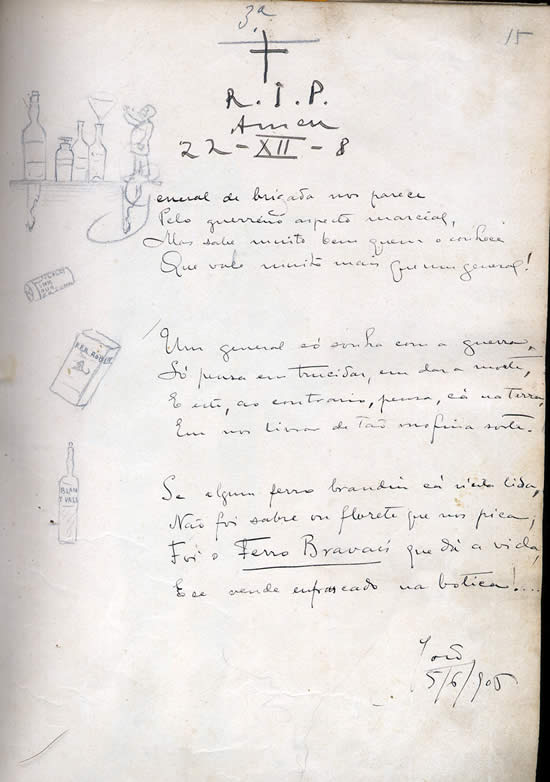 3.ª
15
R. I. P.
Amen
22-XII-8
General de brigada nos parece
Pelo guerreiro aspecto marcial,
Mas sabe muito bem quem o conhece
Que vale muito mais que um general!
Um general só sonha com a guerra,
Só pensa em trucidar, em dar a morte,
E este, ao contrario, pensa, cá na terra,
Em nos livrar de tão mofina sorte.
Se algum ferro brandiu cá n'esta lida,
Não foi sabre ou florete que nos pica,
Foi o Ferro Bravais que dá a vida,
E se vende enfrascado na botica!...
5/6/905